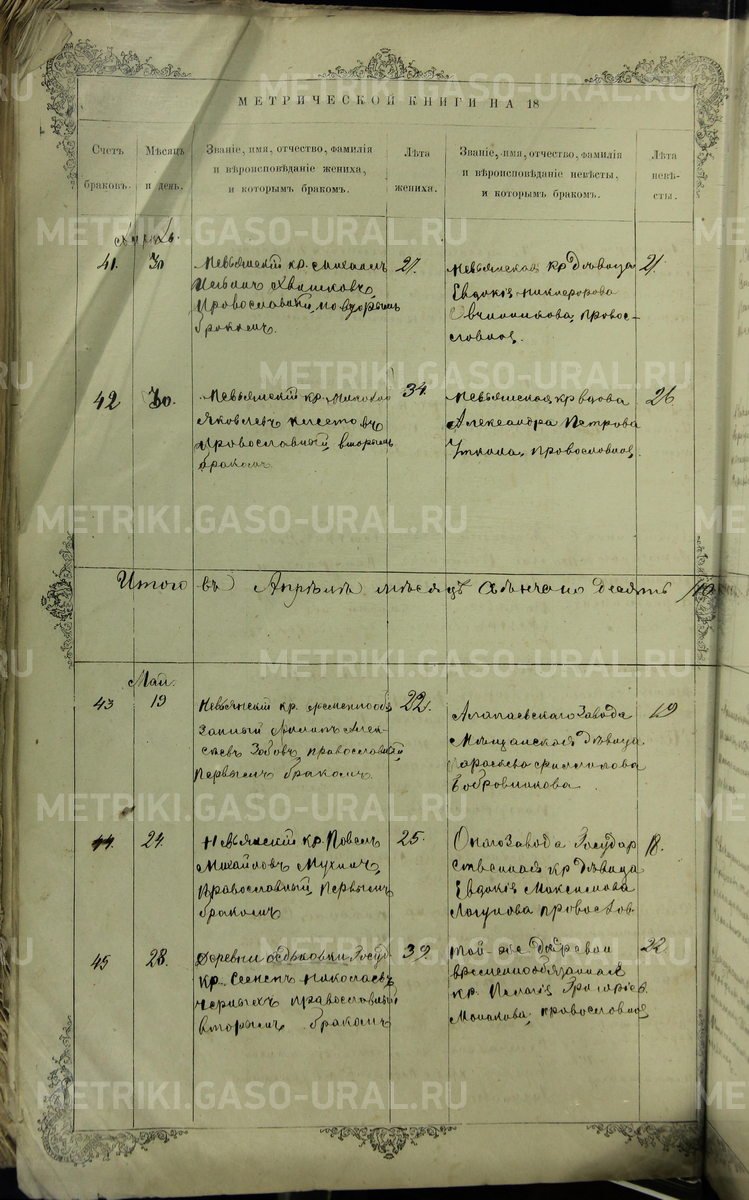 МЕТРИЧЕСКОЙ КНИГИ НА 18
Счетъ браковъ.
Мѣсяцъ и день.
Званіе, имя, отчество, фамилія
и вѣроисповѣданіе жениха,
и которымъ бракомъ.
Лѣта жениха.
Званіе, имя, отчество, фамилія
и вѣроисповѣданіе невѣсты,
и которымъ бракомъ.
Лѣта невѣ-
сты.
Апрѣль.
41. 30
Невьянскій кр. Михаилъ
православный, вторымъ
бракомъ.
27.
Невьянская кр дѣвица
Евдокія Никифорова
Овчинникова, правос-
славная.
21.
42 30.
Невьянскій кр.
Яковлевъ Кисетовъ
православный, вторымъ
бракомъ.
34.
Невьянская кр вдова
Александра Петрова
Уткина, православная.
26
Итого въ Апрѣлѣ мѣсяцѣ обвѣнчано десять /10
Май.
43 19
Невьянскій кр. временнообя
занный Алек-
сѣевъ Зобовъ, православный
первымъ бракомъ.
22.
Алапаевскаго Завода
Мѣщанская дѣвица
Бобровникова.
19
44. 24.
Невьянскій кр. Павелъ
Михайловъ Мухинъ,
православный, первымъ
бракомъ
25.
Онаго Завода Государ
ственная кр дѣвица
Евдокія Максимова
Лагунова правосл.
18.
45 28.
Деревни Федьковки, Госуд.
кр. Семенъ Николаевъ
Черныхъ православный
вторымъ бракомъ
39.
Той-же деревни
временнообязанная
кр. Пелагія Григорьев.
Манакова, православная
22.
METRIKI.GASO-URAL.RU